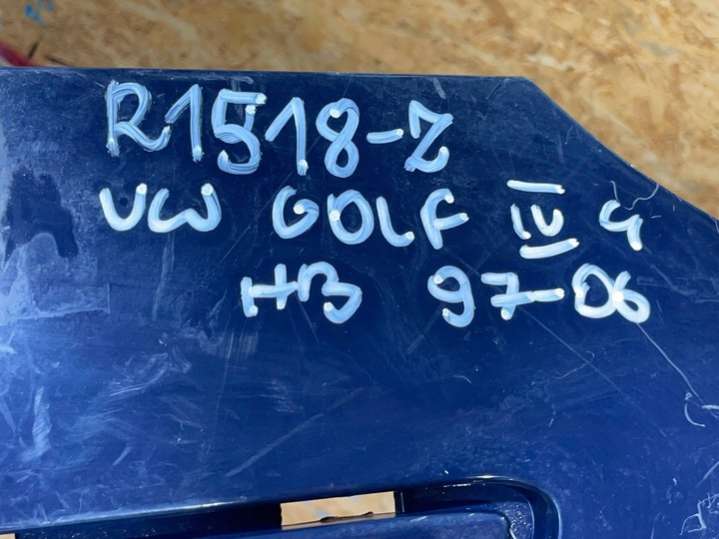 R1518-Z
VW GOLF IV 4
HB 97-06